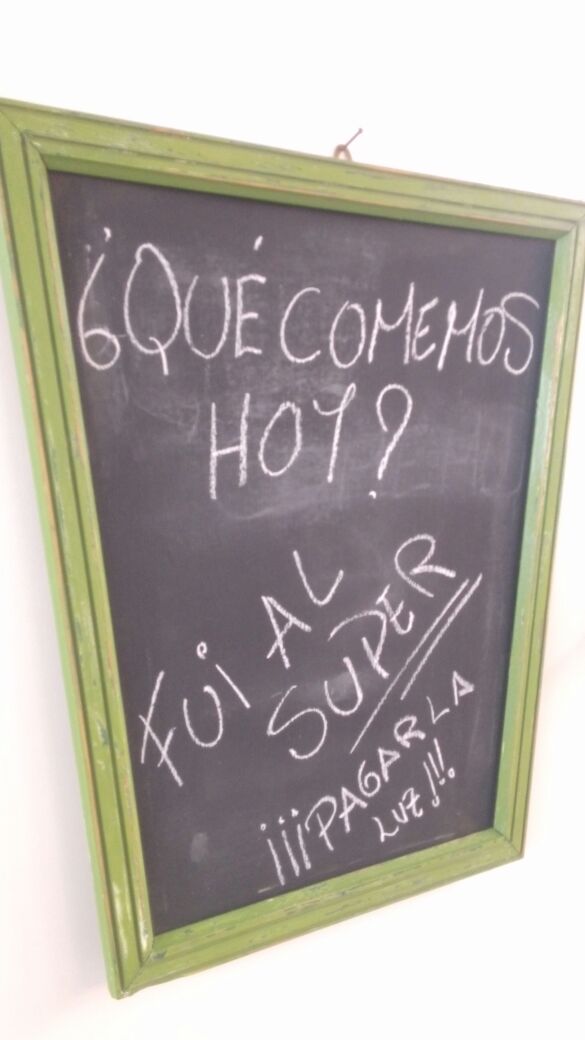 ¿QUÉ COMEMOS
HOY?
FUI AL
SUPER
¡¡¡PAGAR LA
LUZ!!!